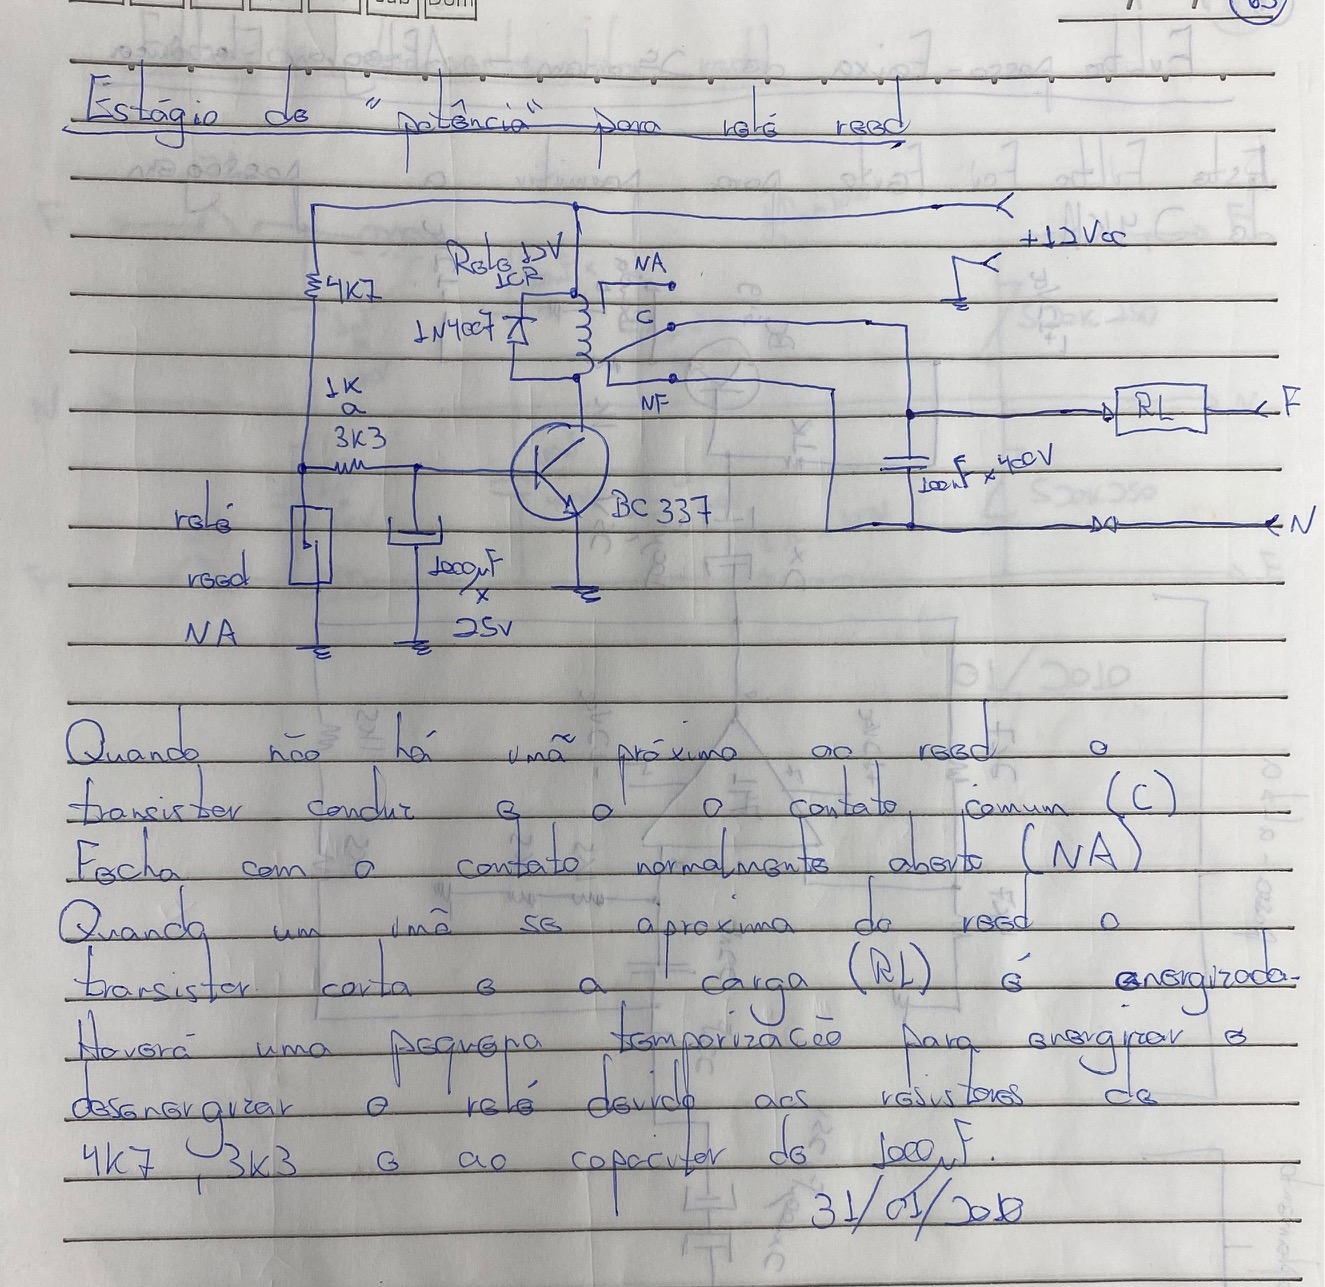 Sab Dom
63
Estágio de "potência" para relé reed
+12Vcc
Rele 12V
1CR
NA
4K7
1N4007
C
1K
a
3K3
NF
RL
F
100nF x 400V
BC 337
relé
reed
NA
1000µF
x
25V
N
Quando não há imã próximo ao reed o
transistor conduz e o o contato comum (C)
Fecha com o contato normalmente aberto (NA)
Quando um imã se aproxima do reed o
transistor corta e a carga (RL) é energizada.
Haverá uma pequena temporização para energizar e
desenergizar o relé devido aos resistores de
4K7, 3K3 e ao capacitor de 1000µF.
31/01/2018